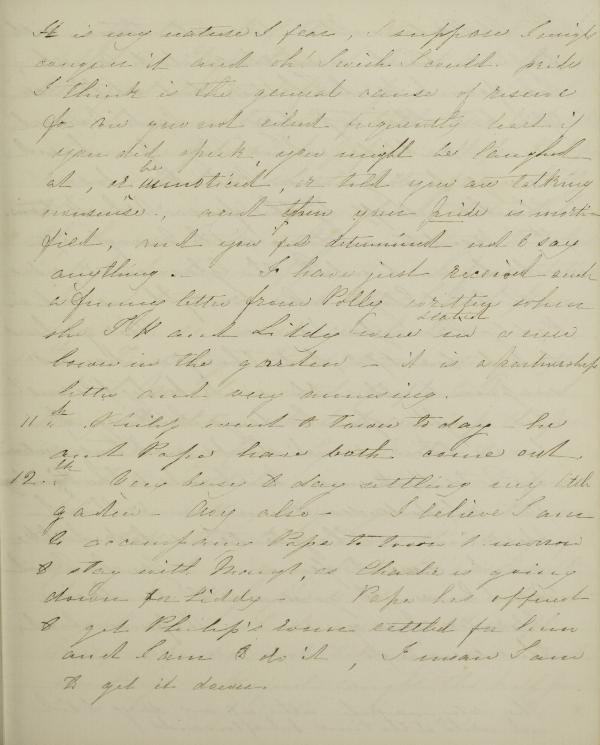 It is my nature I fear, I suppose I might
conquer it and oh! I wish I could. pride
I think is the general cause of reserve
for are you not silent frequently lest if
you did speak, you might be laughed
at, or be unnoticed, or told you are talking
nonsense., and then your pride is morti-
fied, and you feel determined not to say
anything. - I have just received such
a funny letter from Polly written when
she T H and Liddy were seated in a new
bower in the garden - it is a partnership
letter and very amusing.
11th. Philip went to town today he
and Papa have both come out.
12th. Very busy to day settling my little
garden - Any also - I believe I am
to accompany Papa to town tomorrow
to stay with Margt, as Charles is going
down for Liddy - Papa has offered
to get Philip's room settled for him
and I am to do it, I mean I am
to get it done.